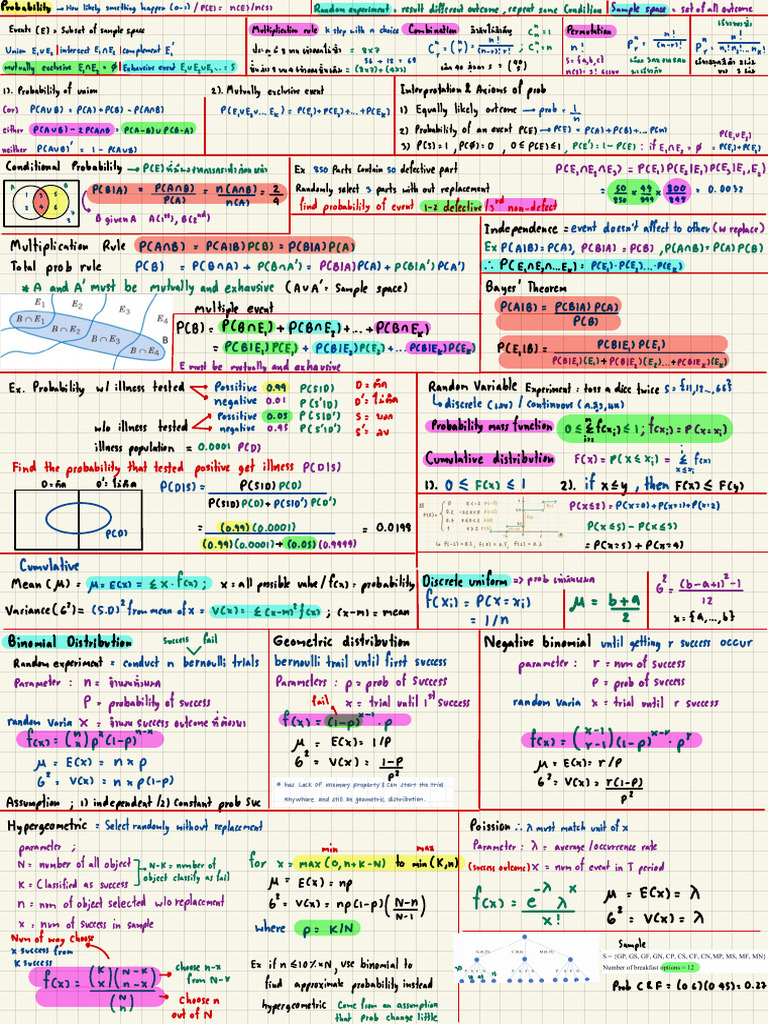 Probability → How likely something happen (0-1) / P(E) = n(E)/n(S)
Random experiment : result different outcome, repeat same condition
Sample space = set of all outcome
Event (E) = Subset of sample space
Union E₁∪E₂ | intersect E₁∩E₂ | complement E₁'
mutually exclusive E₁∩E₂ = ∅ | Exhausive event E₁∪E₂∪... = S
Multiplication rule k step with n choice
Combination
Permutation
n!
S = {a,b,c}
1). Probability of union
(or) P(A∪B) = P(A)+P(B) - P(A∩B)
either P(A∪B) - 2P(A∩B) = P(A-B)∪P(B-A)
neither P(A∪B)' = 1 - P(A∪B)
2). Mutually exclusive event
P(E₁∪E₂∪...Eₖ) = P(E₁)+P(E₂)+...+P(Eₖ)
Interpretation & Axioms of prob
1) Equally likely outcome → prob = 1/n
2) Probability of an event P(E) → P(E) = P(A)+P(B)+...P(n)
3) P(S)=1, P(∅)=0, 0≤P(E)≤1, P(E')=1-P(E) : if E₁∩E₂=∅ P(E₁∪E₂) = P(E₁)+P(E₂)
Conditional Probability
P(B|A) = P(A∩B)/P(A) = n(A∩B)/n(A) = 2/4
B given A A(1st), B(2nd)
Ex 850 Parts Contain 50 defective part
Randomly select 3 parts with out replacement
find probability of event 1-2 defective / 3rd non-defect
P(E₁∩E₂∩E₃) = P(E₁)P(E₂|E₁)P(E₃|E₁,E₂)
= 50/850 × 49/849 × 800/848 = 0.0032
Multiplication Rule P(A∩B) = P(A|B)P(B) = P(B|A)P(A)
Total prob rule P(B) = P(B∩A) + P(B∩A') = P(B|A)P(A) + P(B|A')P(A')
* A and A' must be mutually and exhausive (A∪A' = Sample space)
Independence = event doesn't affect to other (w replace)
Ex P(A|B)=P(A), P(B|A)=P(B), P(A∩B)=P(A)P(B)
∴ P(E₁∩E₂∩...Eₖ) = P(E₁)·P(E₂)...·P(Eₖ)
E₁ E₂ E₃ E₄
B∩E₁ B∩E₂ B∩E₃ B∩E₄ B
multiple event
P(B) = P(B∩E₁) + P(B∩E₂) + ... + P(B∩Eₖ)
= P(B|E₁)P(E₁) + P(B|E₂)P(E₂) + ... P(B|Eₖ)P(Eₖ)
E must be mutually and exhausive
Bayes' Theorem
P(A|B) = P(B|A)P(A)/P(B)
P(E₁|B) = P(B|E₁)P(E₁)/P(B|E₁)(E₁)+P(B|E₂)(E₂)...+P(B|Eₖ)(Eₖ)
Ex. Probability w/ illness tested
Possitive 0.99 P(S|D)
negative 0.01 P(S'|D)
w/o illness tested
Possitive 0.05 P(S|D')
negative 0.95 P(S'|D')
illness population = 0.0001 P(D)
Find the probability that tested positive get illness P(D|S)
P(D)
P(D|S) = P(S|D)P(D)/P(S|D)P(D)+P(S|D')P(D')
= (0.99)(0.0001)/(0.99)(0.0001)+(0.05)(0.9999) = 0.0198
Random Variable Experiment : toss a dice twice S = {11,12...,66}
Probability mass function
Cumulative distribution F(x) = P(X≤xᵢ) = Σ f(x)
1). 0 ≤ F(x) ≤ 1 2). if x≤y, then F(x) ≤ F(y)
P(X≤2) = P(x=0)+P(x=1)+P(x=2)
P(X≤5) - P(X≤3)
= P(x=5) + P(x=4)
Cumulative
Mean (μ) = μ = E(x) = Σx·f(x) ; x = all possible value / f(x) = probability
Variance (6²) = (S.D)² from mean of x = V(x) = Σ(x-m)²f(x) ; (x-m) = mean
Discrete uniform
f(xᵢ) = P(X=xᵢ)
= 1/n
μ = b+a/2
6² = (b-a+1)²-1/12
x = {a,...,b}
Binomial Distribution success fail
Random experiment = conduct n bernoulli trials
Parameter : n =
P = probability of success
f(x) = (n x) pˣ(1-p)ⁿ⁻ˣ
μ = E(x) = n×p
6² = V(x) = n×p(1-p)
Assumption ; 1) independent /2) Constant prob Suc
Geometric distribution
bernoulli trail until first success
Parameters : p = prob of success
fail x = trial until 1st success
f(x) = (1-p)ˣ⁻¹·p
μ = E(x) = 1/P
6² = V(x) = 1-P/P²
* has Lack of memory property & can start the trial
anywhere and still be geometric distribution.
Negative binomial until getting r success occur
parameter : r = num of success
p = prob of success
random varia x = trial until r success
f(x) = (x-1 r-1)(1-p)ˣ⁻ʳ·pʳ
μ = E(x) = r/P
6² = V(x) = r(1-p)/p²
Hypergeometric = Select randomly without replacement
parameter ;
N = number of all object
N-K = number of object classify as fail
K = Classified as success
n = num of object selected w/o replacement
x = num of success in sample
Num of way choose
x success from
K success
f(x) = (K x)(N-K n-x)/(N n)
choose n-x
from N-K
choose n
out of N
min max
for x = max(0, n+K-N) to min(K,n)
μ = E(x) = np
6² = V(x) = np(1-p)(N-n/N-1)
where p = K/N
Ex if n ≤ 10% × N, use binomial to
find approximate probability instead
hypergeometric Come from an assumption
that prob change little
Poission ∴ λ must match unit of x
Parameter : λ = average /occurrence rate
(success outcome) X = num of event in T period
f(x) = e^-λ λˣ/x!
μ = E(x) = λ
6² = V(x) = λ
Sample
S = {GP, GS, GF, GN, CP, CS, CF, CN, MP, MS, MF, MN}
Number of breakfast options = 12
Prob C&F = (0.6)(0.45) = 0.27